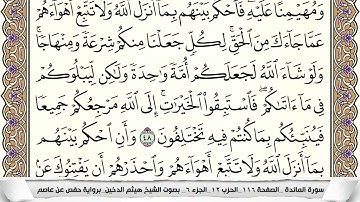 وَمُهَيْمِنًا عَلَيْهِ فَٱحْكُم بَيْنَهُم بِمَآ أَنزَلَ ٱللَّهُ وَلَا تَتَّبِعْ أَهْوَآءَهُمْ
عَمَّا جَآءَكَ مِنَ ٱلْحَقِّ ۚ لِكُلٍّ جَعَلْنَا مِنكُمْ شِرْعَةً وَمِنْهَاجًا ۚ
وَلَوْ شَآءَ ٱللَّهُ لَجَعَلَكُمْ أُمَّةً وَٰحِدَةً وَلَٰكِن لِّيَبْلُوَكُمْ
فِى مَآ ءَاتَىٰكُمْ ۖ فَٱسْتَبِقُوا۟ ٱلْخَيْرَٰتِ ۚ إِلَى ٱللَّهِ مَرْجِعُكُمْ جَمِيعًا
فَيُنَبِّئُكُم بِمَا كُنتُمْ فِيهِ تَخْتَلِفُونَ ٤٨ وَأَنِ ٱحْكُم بَيْنَهُم
بِمَآ أَنزَلَ ٱللَّهُ وَلَا تَتَّبِعْ أَهْوَآءَهُمْ وَٱحْذَرْهُمْ أَن يَفْتِنُوكَ عَنۢ
سورة المائدة _الصفحة ١١٦_ الحزب ١٢_ الجزء ٦_ بصوت الشيخ هيثم الدخين_ برواية حفص عن عاصم